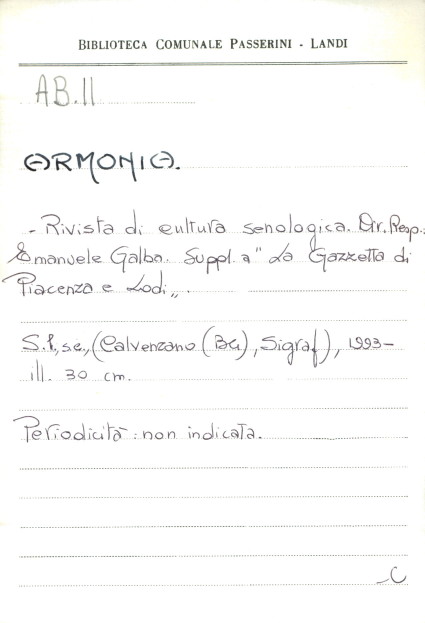 BIBLIOTECA COMUNALE PASSERINI - LANDI
AB.II
ARMONIA.
- Rivista di cultura senologica. Dir. Resp.:
Emanuele Galba. Suppl. a " La Gazzetta di
Piacenza e Lodi„.
S.l., s.e., (Calvenzano (BG), Sigraf), 1993-
ill. 30 cm.
Periodicità: non indicata.
C